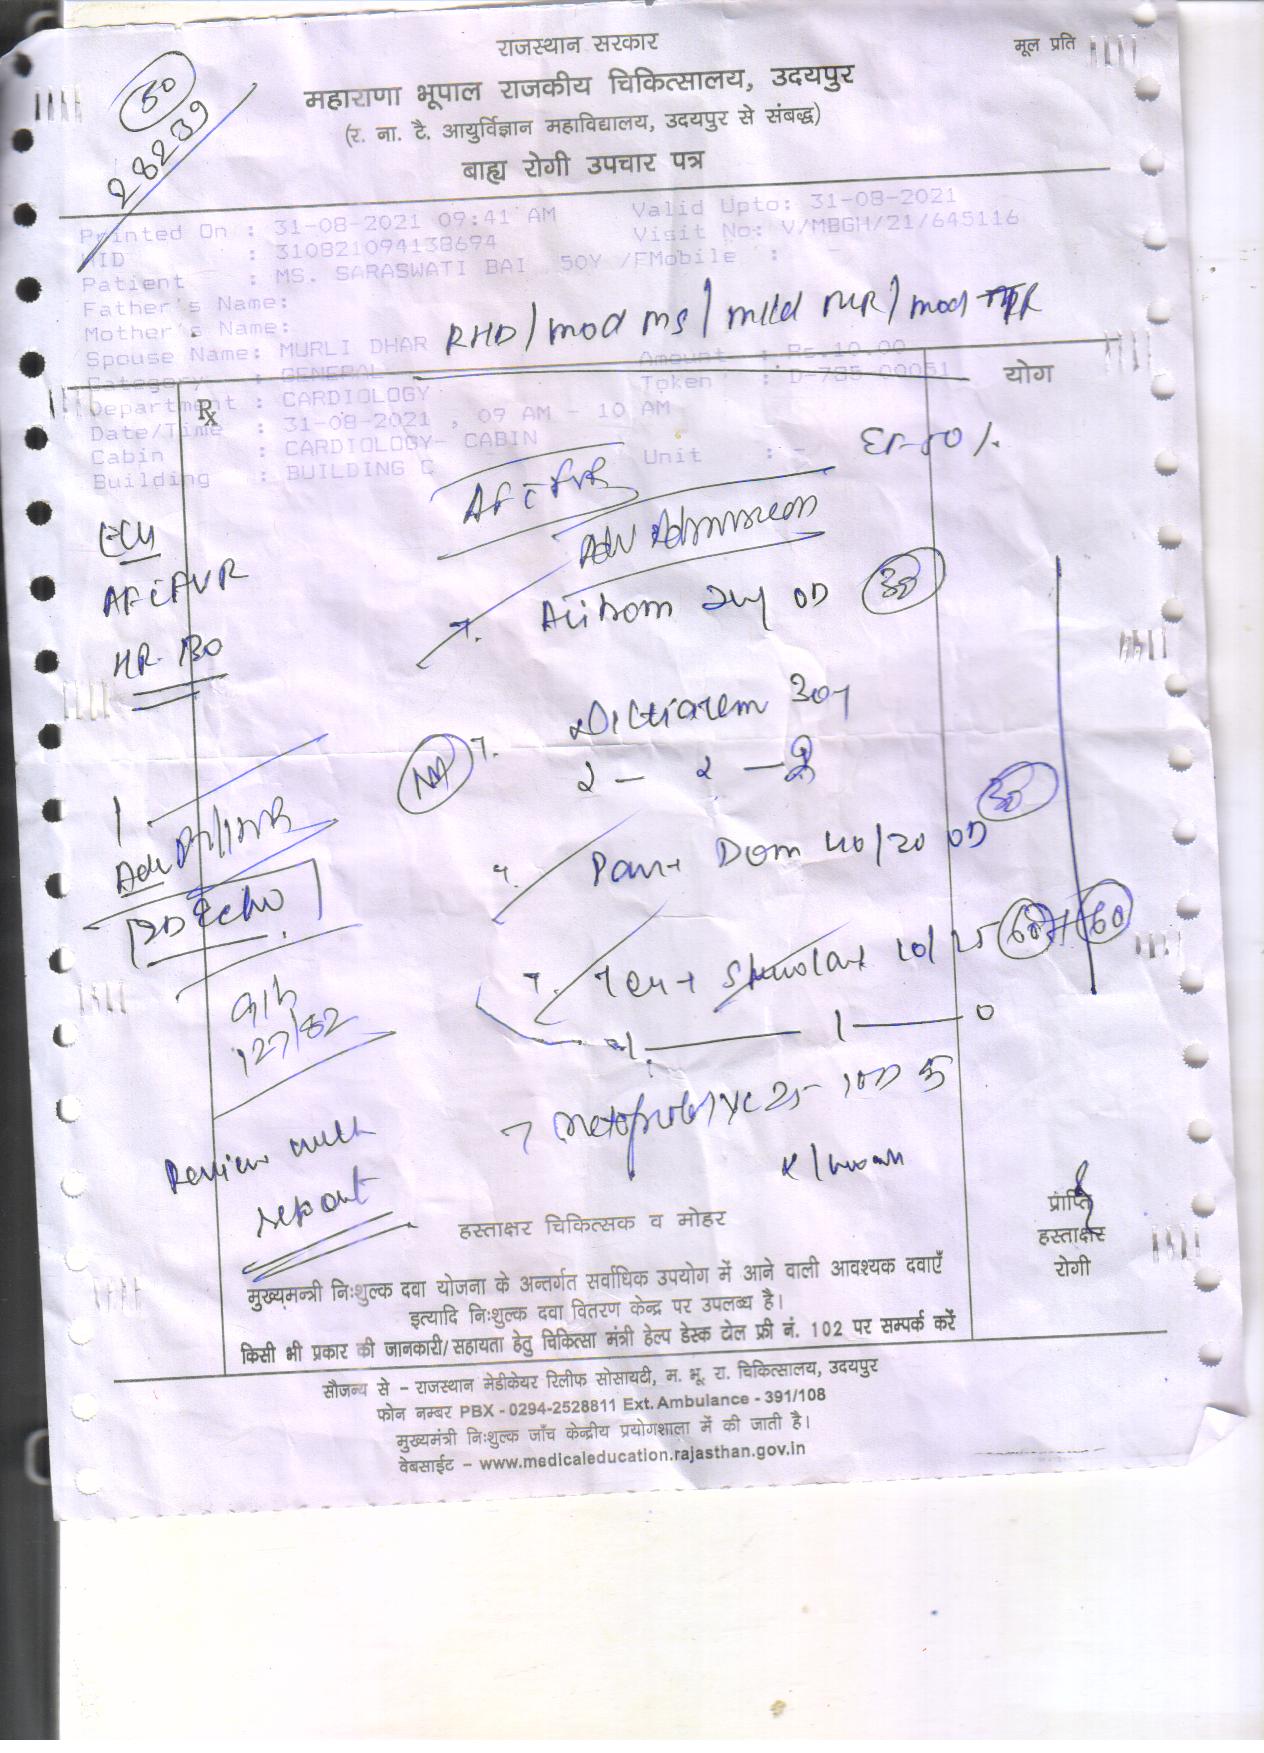 राजस्थान सरकार
मूल प्रति
महाराणा भूपाल राजकीय चिकित्सालय, उदयपुर
(र. ना. टै. आयुर्विज्ञान महाविद्यालय, उदयपुर से संबद्ध)
बाह्य रोगी उपचार पत्र
50
28239
Printed On : 31-08-2021 09:41 AM Valid Upto: 31-08-2021
HID : 310821094138694 Visit No: V/MBGH/21/645116
Patient : MS. SARASWATI BAI 50Y /F Mobile : -
Father's Name:
Mother's Name:
Spouse Name: MURLI DHAR Amount : Rs.10.00
Category : GENERAL Token : D-785-00051
Department : CARDIOLOGY
Date/Time : 31-08-2021 , 09 AM - 10 AM
Cabin : CARDIOLOGY- CABIN
Building : BUILDING C Unit : -
RHD / mod MS / mild MR / mod TR
योग
Rx
AF c FVR
Adv Admission
ECG
AF c FVR
HR- 130
T. OD 30
T. Diltiazem 30
2 - 2 - 2
NA
Adv PT/INR
2D Echo
T. Pan + Dom 40/20 OD 30
127/82
1 - 0
T Metoprolol XL 25
Review with
report
हस्ताक्षर चिकित्सक व मोहर
प्राप्ति
हस्ताक्षर
रोगी
मुख्यमन्त्री निःशुल्क दवा योजना के अन्तर्गत सर्वाधिक उपयोग में आने वाली आवश्यक दवाएँ
इत्यादि निःशुल्क दवा वितरण केन्द्र पर उपलब्ध है।
किसी भी प्रकार की जानकारी/सहायता हेतु चिकित्सा मंत्री हेल्प डेस्क टोल फ्री नं. 102 पर सम्पर्क करें
सौजन्य से – राजस्थान मेडीकेयर रिलीफ सोसायटी, म. भू. रा. चिकित्सालय, उदयपुर
फोन नम्बर PBX - 0294-2528811 Ext. Ambulance - 391/108
मुख्यमंत्री निःशुल्क जाँच केन्द्रीय प्रयोगशाला में की जाती है।
वेबसाईट – www.medicaleducation.rajasthan.gov.in